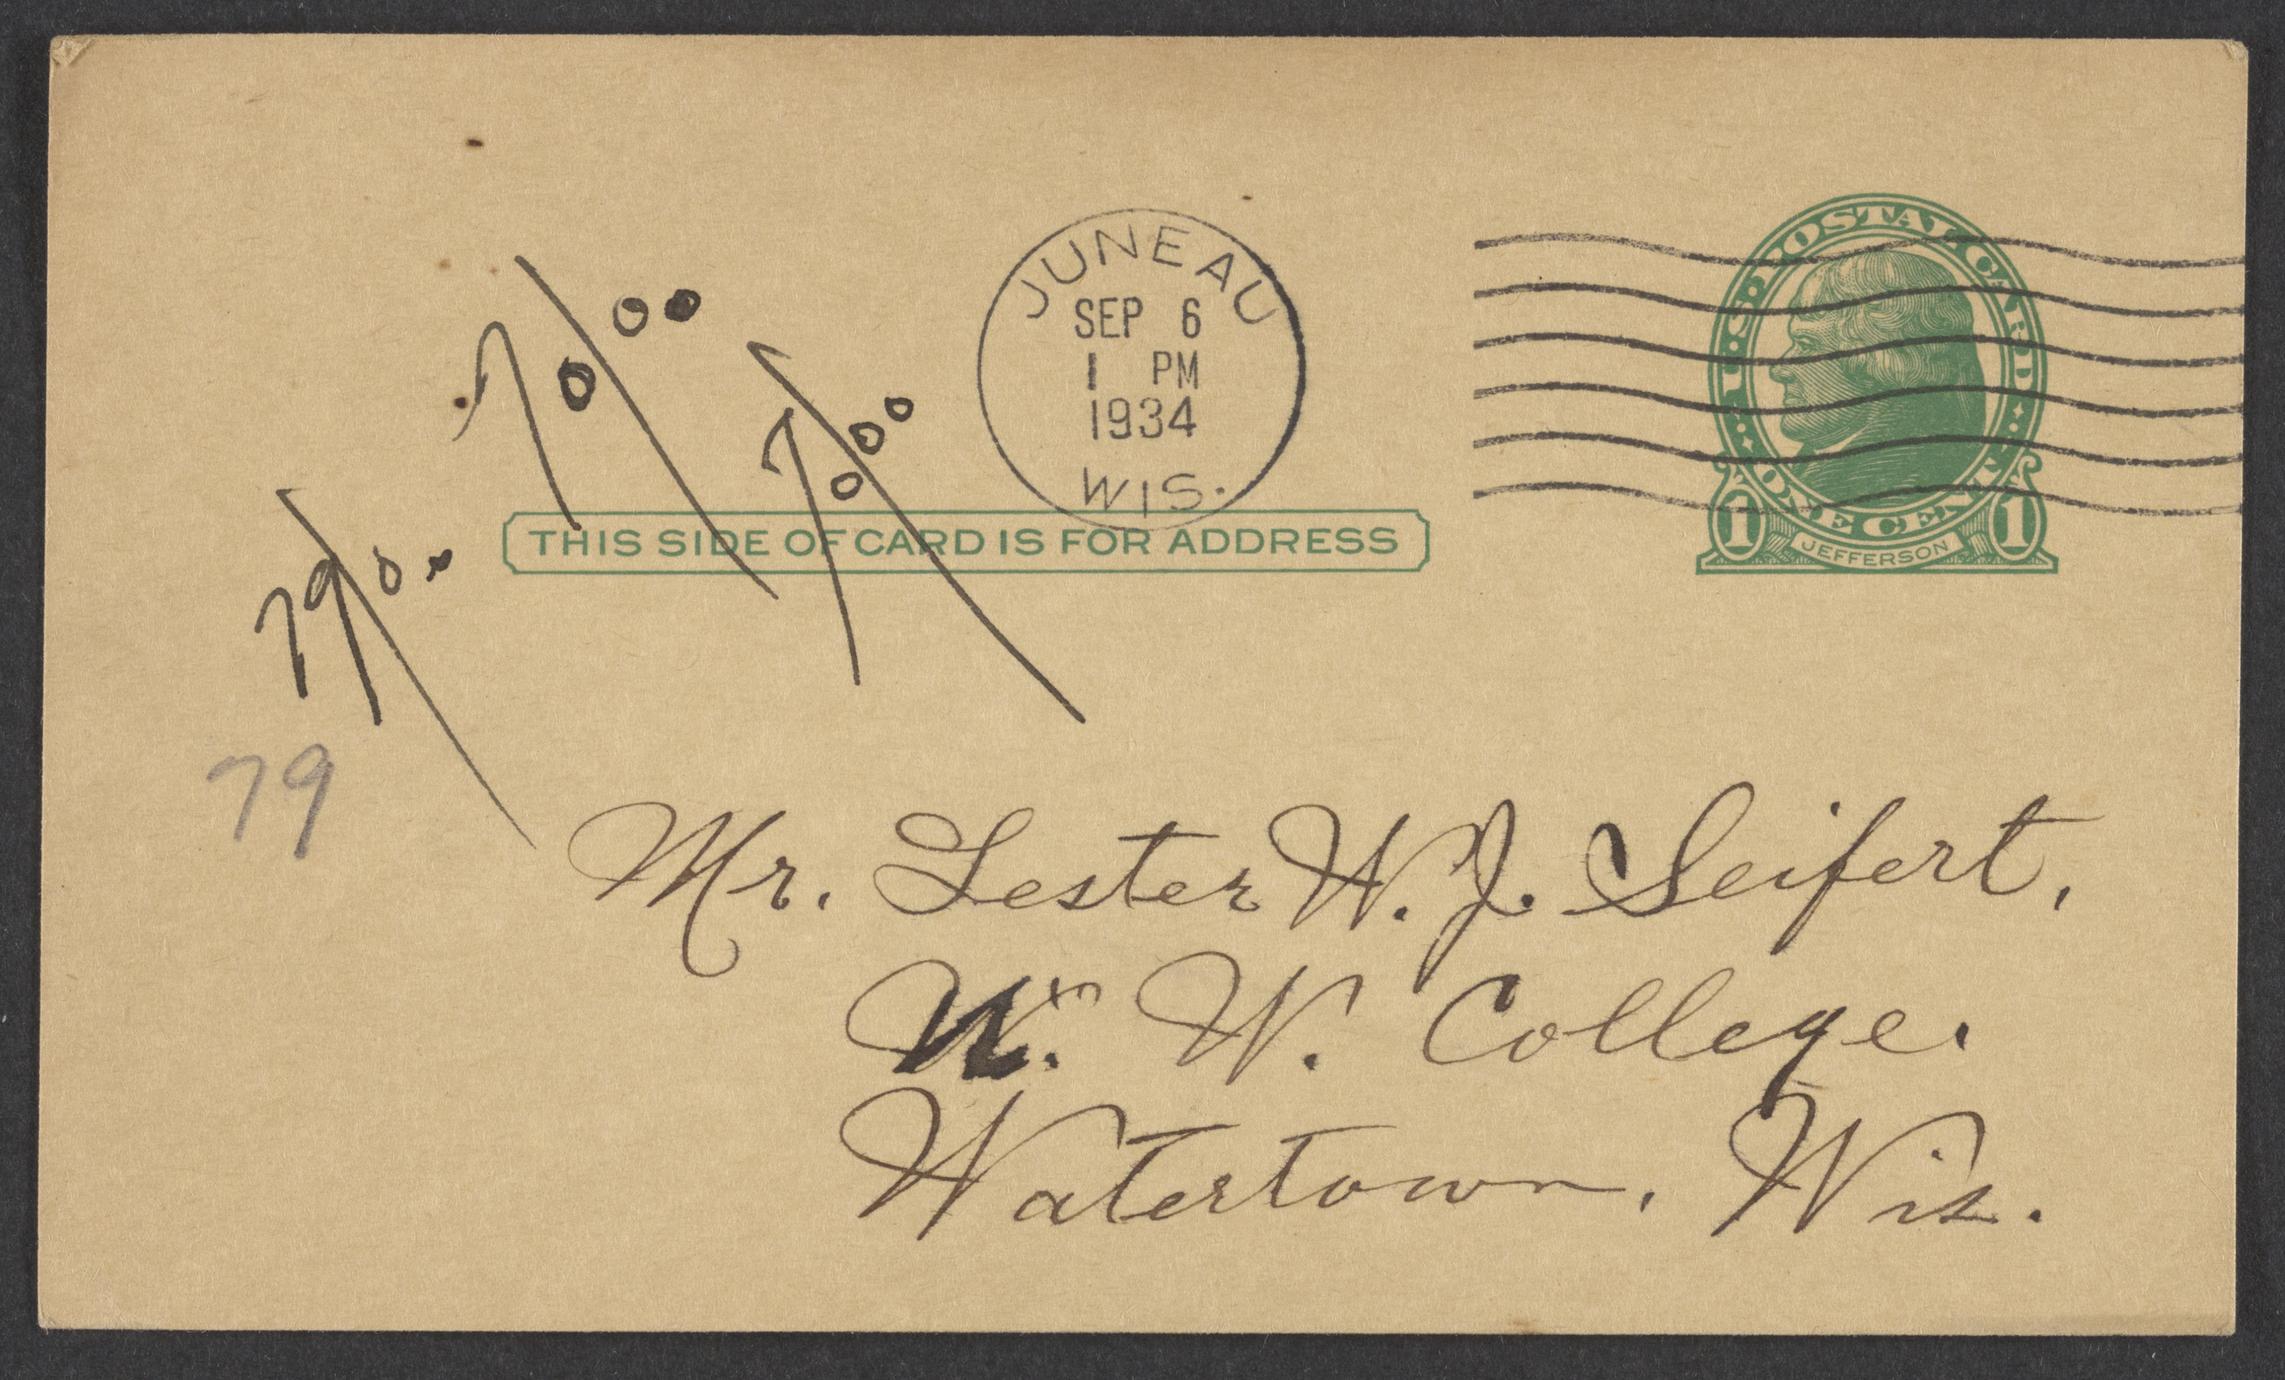 JUNEAU
SEP 6
1 PM
1934
WIS.
U·S·POSTAL CARD
ONE CENT
1 1
JEFFERSON
THIS SIDE OF CARD IS FOR ADDRESS
79
Mr. Lester W. J. Seifert,
W. College.
Watertown, Wis.